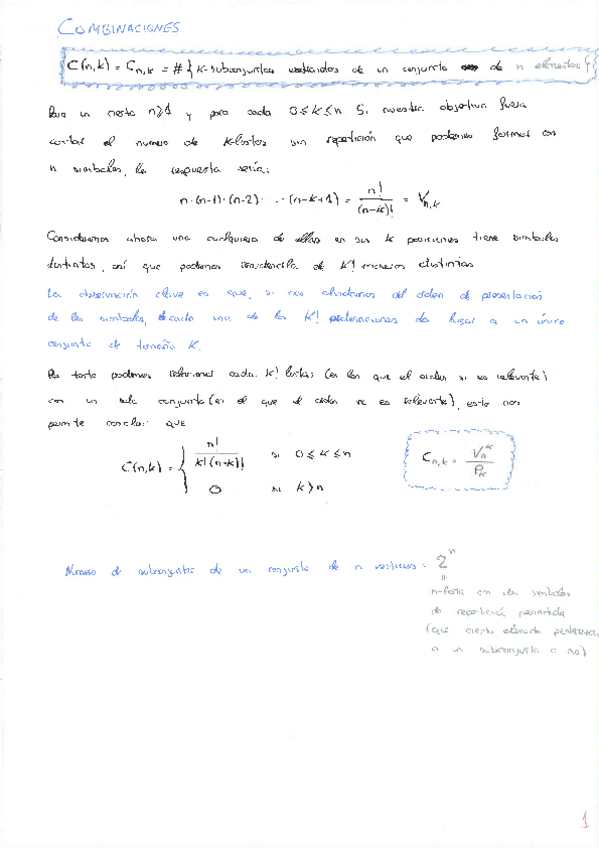 COMBINACIONES
C(n,k) = C_{n,k} = # { k-subconjuntos extraidos de un conjunto de n elementos }
Para un cierto n≥1 y para cada 0≤k≤n Si nuestro objetivo fuera
contar el numero de k-listas sin repetición que podemos formar con
n simbolos, la respuesta seria:
n·(n-1)·(n-2)· ··(n-k+1) = n!/(n-k)! = V_{n,k}
Consideremos ahora una cualquiera de ellas en sus k posiciones tiene simbolos
distintos, así que podemos reordenarla de k! maneras distintas
La observación clave es que, si nos olvidamos del orden de presentación
de los simbolos, cada una de las k! permutaciones da lugar a un único
conjunto de tamaño k.
Por tanto podemos relacionar cada k! listas (en las que el orden si es relevante)
con un solo conjunto (en el que el orden no es relevante), esto nos
permite concluir que
C(n,k) = { n!/(k!(n-k)!) si 0≤k≤n
0 si k>n
C_{n,k} = V_n^k / P_k
Numero de subconjuntos de un conjunto de n : 2^n
n-lista con dos simbolos
de repetición permitida
(que cierto elemento pertenezca
a un subconjunto o no)
1